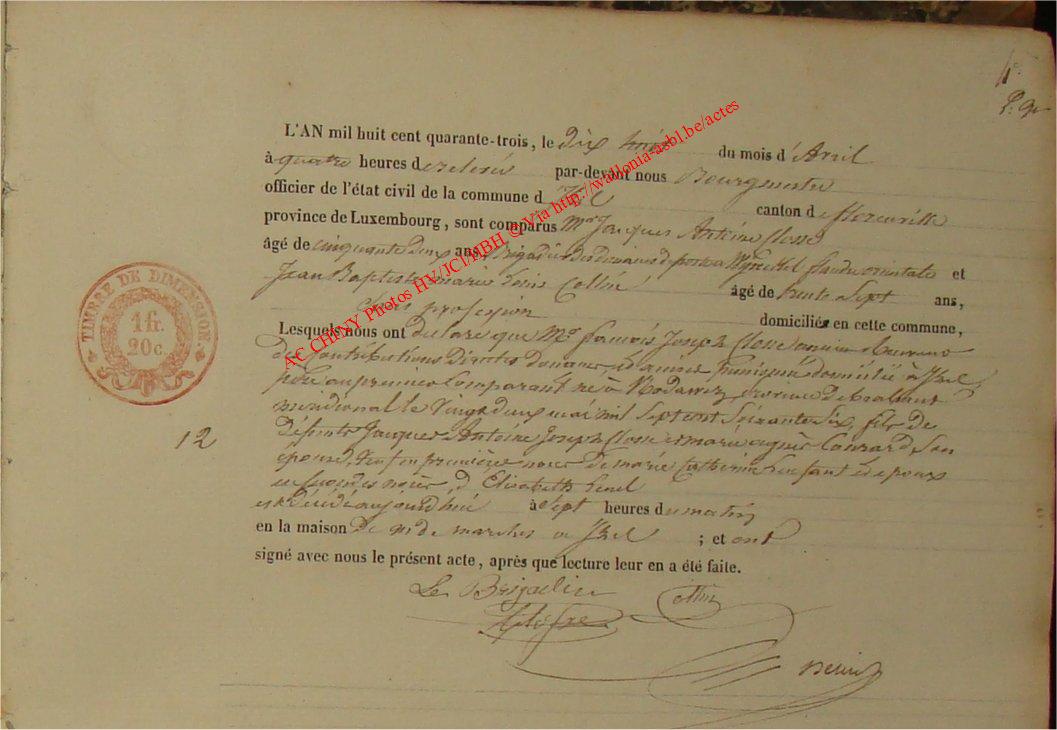 L'AN mil huit cent quarante-trois, le Dix du mois d'Avril
à quatre heures de relevée par-devant nous Bourgmestre
officier de l'état civil de la commune d'Izel canton de florenville
province de Luxembourg, sont comparus Mr Jacques Antoine Closse
âgé de cinquante deux ans, Brigadier des douanes flandre orientale et
Jean Baptiste marie Louis Collin âgé de trente Sept ans,
Sans profession domiciliés en cette commune,
Lesquels nous ont déclaré que Mr francois Joseph Closse ancien
des Contributions Directes douanes et accises domicilié à Izel
père au premier Comparant né à province de brabant
méridional le Vingt deux mai mil Sept cent Soixante Six, fils de
défunts Jacques Antoine Joseph Closse et marie agnès Conrard, Son
épouse, Veuf en premières noces de marie Catherine et époux
en Secondes noces d'Elisabeth
est Décédé aujourd'hui à Sept heures du matin
en la maison de mr de marches à Izel ; et ont
signé avec nous le présent acte, après que lecture leur en a été faite.
Le Brigadier
TIMBRE DE DIMENSION
1 fr.
20 c.
12
AC CHINY Photos HV/JCl/MBH © Via http://wallonia-asbl.be/actes